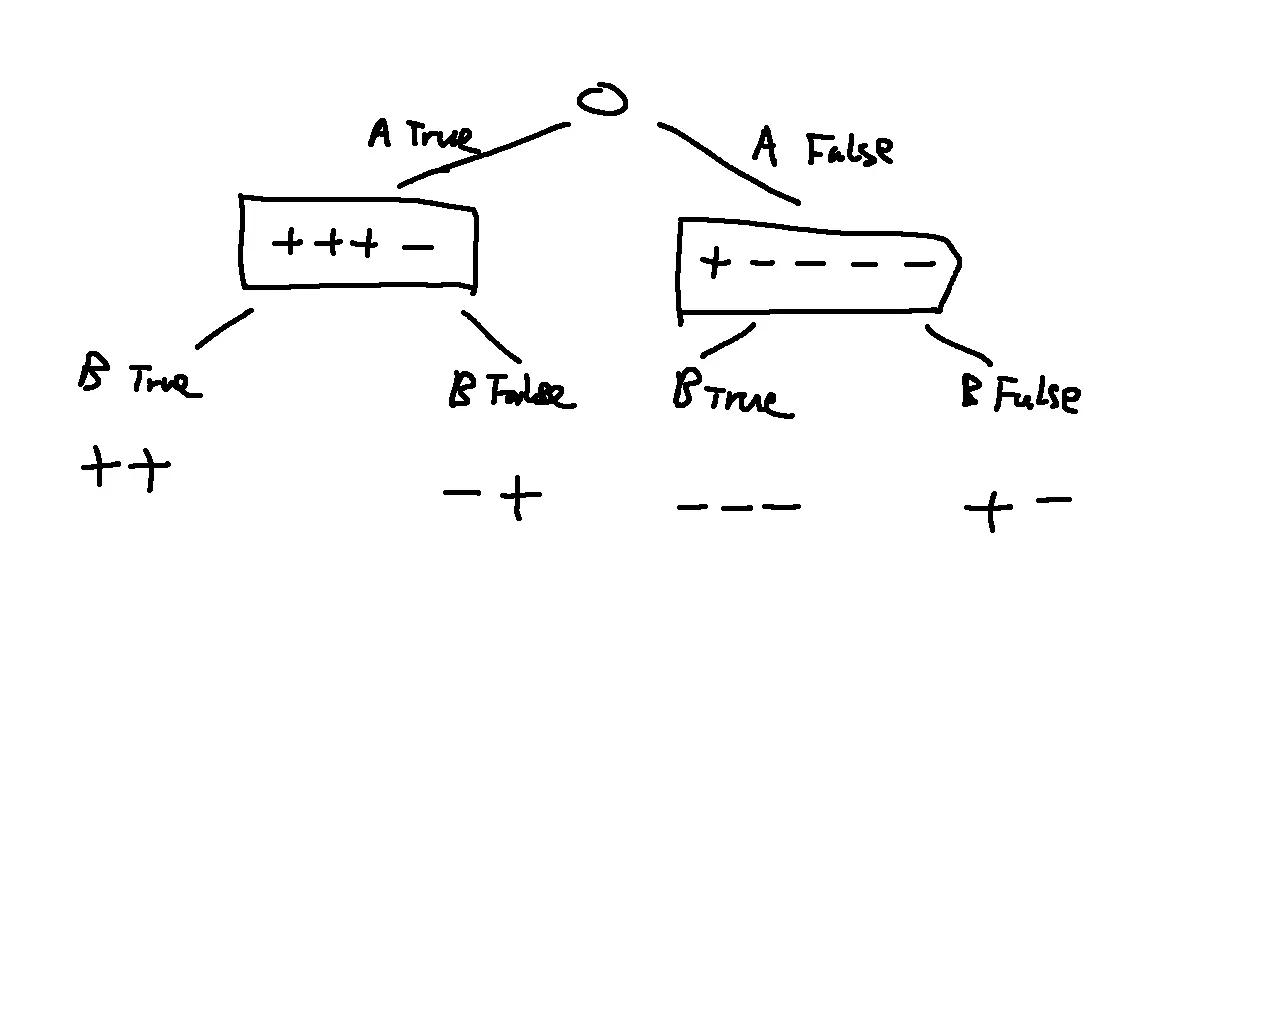 A True
A False
+++ -
+ - - - -
B True
B False
B True
B False
++
- +
- - -
+ -